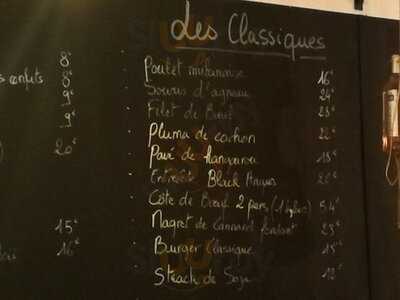 Les Classiques
8€
confits 8€
9€
9€
20€
15€
16€
Poulet 16€
Souris d'agneau 24€
Filet de Bœuf 28€
Pluma de cochon 22€
Pavé de 18€
Entrecôte Black Angus
Côte de Bœuf 2 pers (1 kg) 54€
Magret de Canard fondant 23€
Burger Classique 15€
Steack de Soja 12€